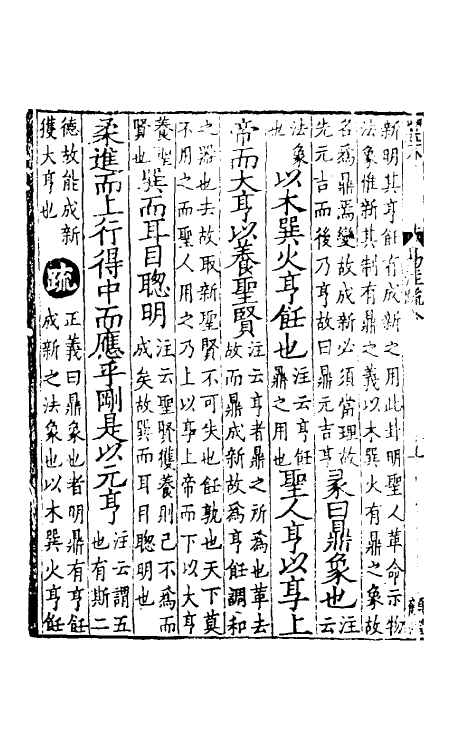 新明其亨飪有成新之用此卦明聖人革命示物
法象惟新其制有鼎之義以木巽火有鼎之象故
名爲鼎焉變故成新必須當理故
先元吉而後乃亨故曰鼎元吉亨
彖曰鼎象也
注
云
法象
也
以木巽火亨飪也
注云亨飪
鼎之用也
聖人亨以享上
帝而大亨以養聖賢
注云亨者鼎之所爲也革去
故而鼎成新故爲亨飪調和
之器也去故取新聖賢不可失也飪孰也天下莫
不用之而聖人用之乃上以享上帝而下以大亨
養聖
賢也
巽而耳目聰明
注云聖賢獲養則己不爲而
成矣故巽而耳目聰明也
柔進而上行得中而應乎剛是以元亨
注云謂五
也有斯二
德故能成新
獲大亨也
疏
正義曰鼎象也者明鼎有亨飪
成新之法象也以木巽火亨飪